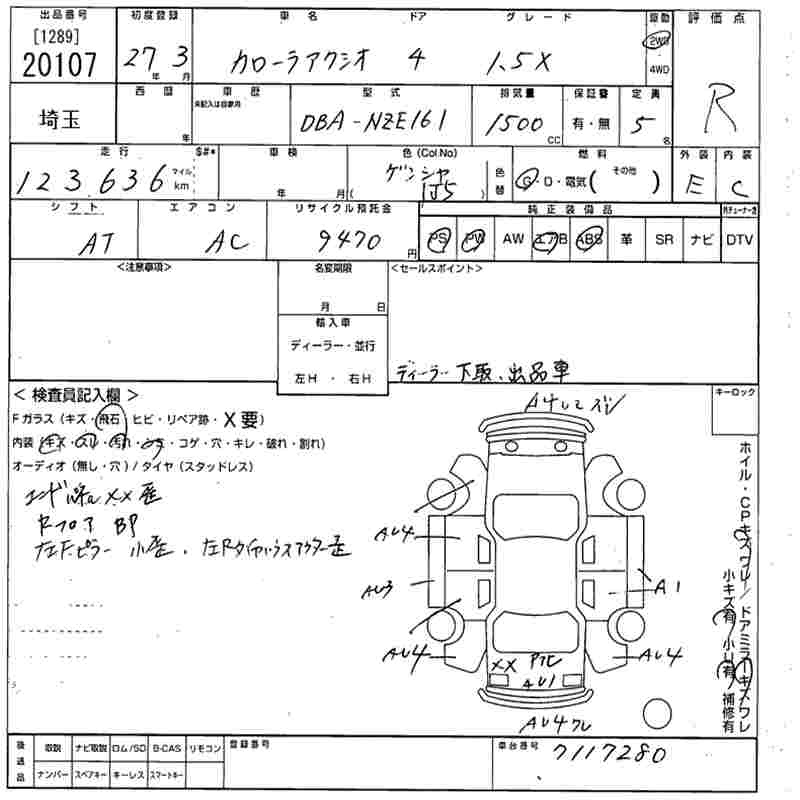 出品番号 初度登録 車名 ドア グレード 駆動 評価点
[1289]
20107 27年 3月 カローラアクシオ 4 1.5X 2WD R
4WD
埼玉 西暦 年 車歴 型式 排気量 保証書 定員
未記入は自家用 DBA-NZE161 1500cc 有・無 5名
走行 $#* 車検 色(Col.No) 燃料 外装 内装
123,636 マイル km 年 月( ) ゲンシャ 1b5 色替 G・D・電気( その他 ) E C
シフト エアコン リサイクル預託金 純正装備品
AT AC 9470円 PS PW AW エアB ABS 革 SR ナビ DTV
<注意事項> 名変期限 <セールスポイント>
月 日
輸入車
ディーラー・並行
左H・右H
ディーラー下取、出品車
<検査員記入欄> キーロック
Fガラス(キズ・飛石・ヒビ・リペア跡・X要)
内装(キズ・スレ・汚れ・コゲ・穴・キレ・破れ・割れ)
オーディオ(無し・穴)/タイヤ(スタッドレス)
XX歪
Rフロア BP
左Fピラー小歪、左Rタイヤハウスアウター歪
A4
AU4
AU3 A1
AU4 XX AU1 AU4
AU4ワレ
ホイル・CPキズワレ/ドアミラーキズワレ
小キズ有 小U有 補修有
後送品 取説 ナビ取説 ロム/SD B-CAS リモコン 登録番号 車台番号
ナンバー スペアキー キーレス スマートキー 7117280